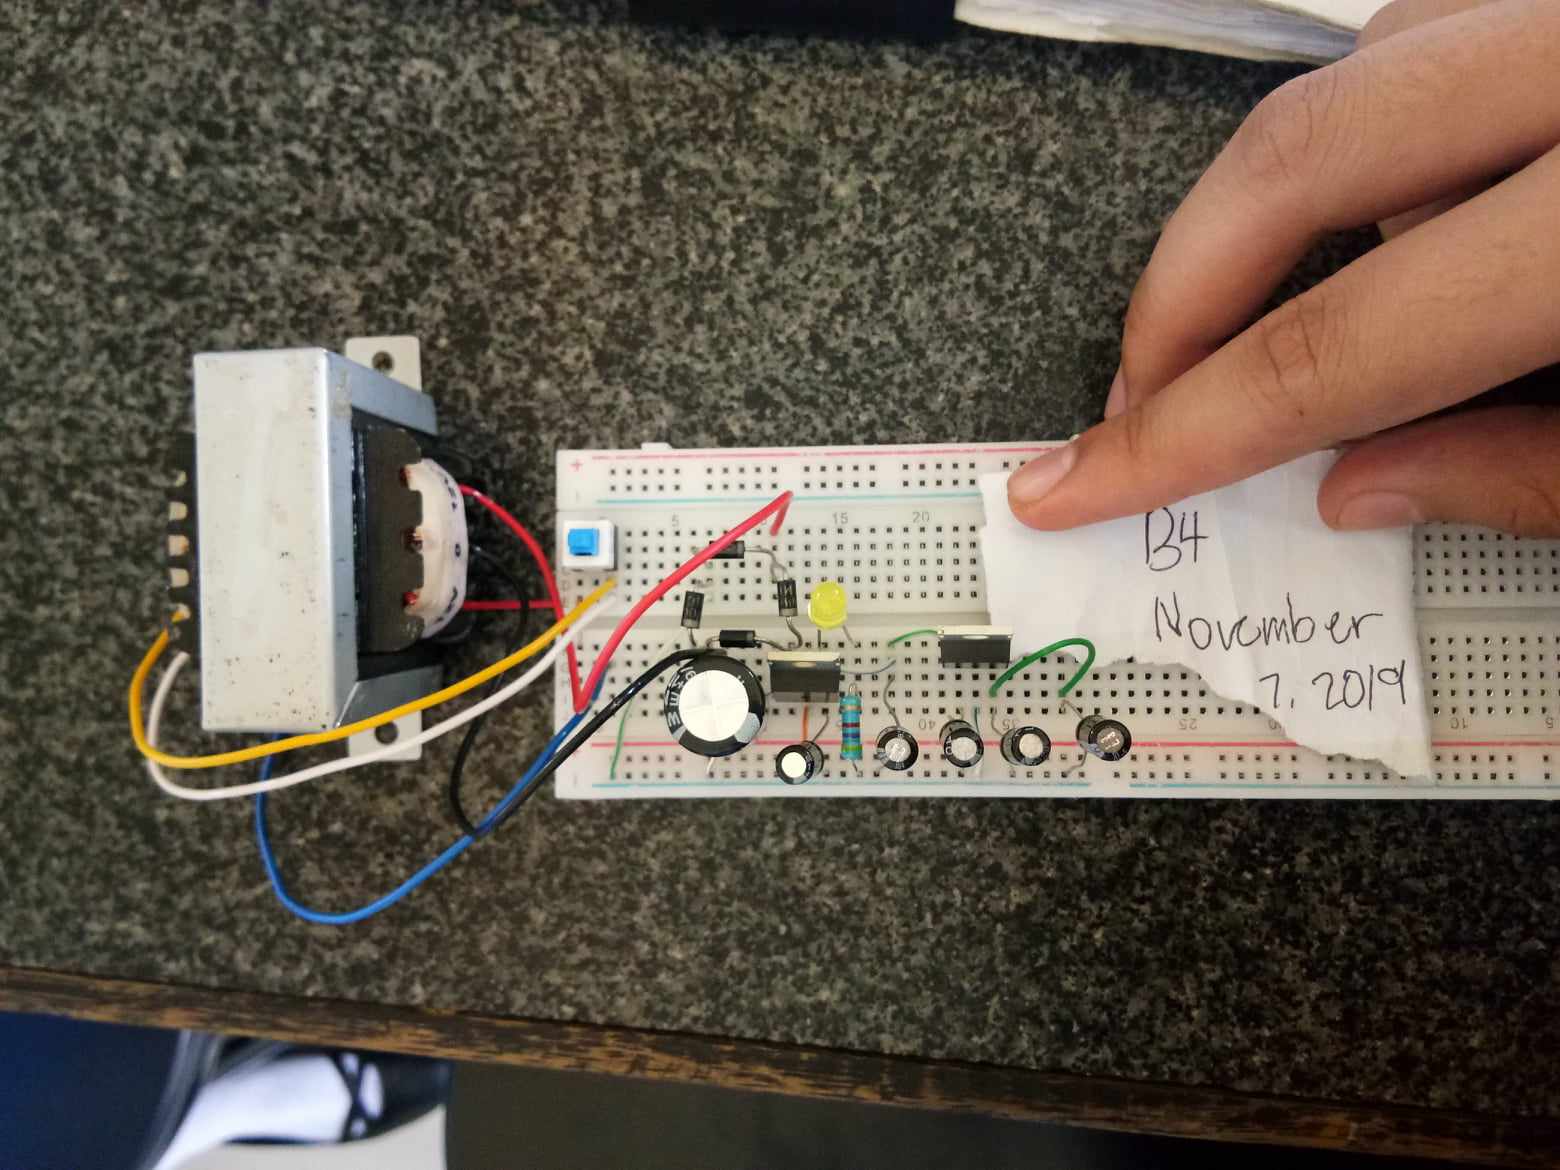 B4
November
7, 2019
+
5
15
20
40
35
25
10